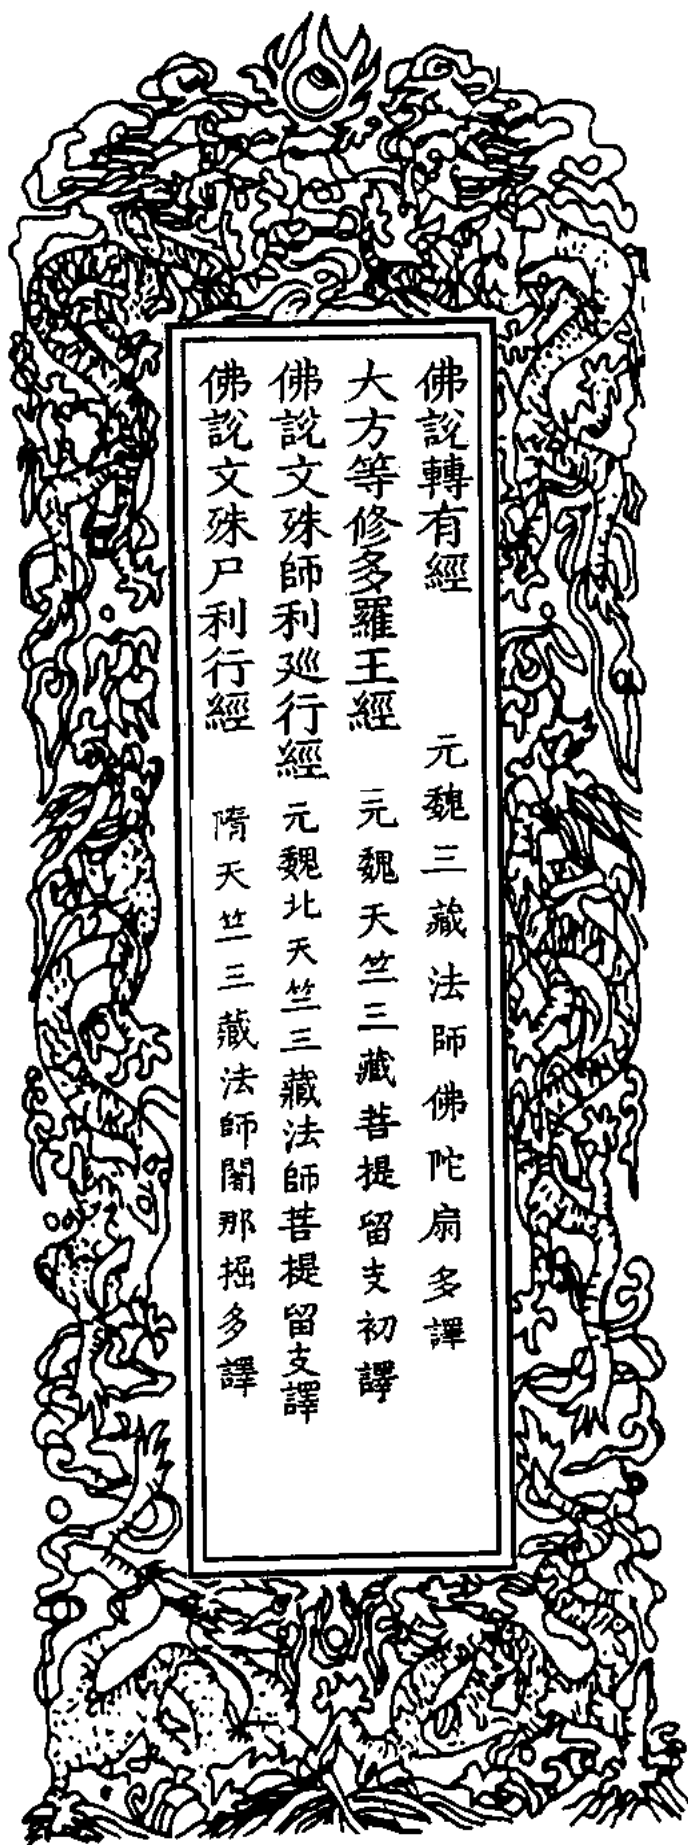 佛說轉有經　元魏三藏法師佛陀扇多譯
大方等修多羅王經　元魏天竺三藏菩提留支初譯
佛說文殊師利巡行經　元魏北天竺三藏法師菩提留支譯
佛說文殊尸利行經　隋天竺三藏法師闍那掘多譯